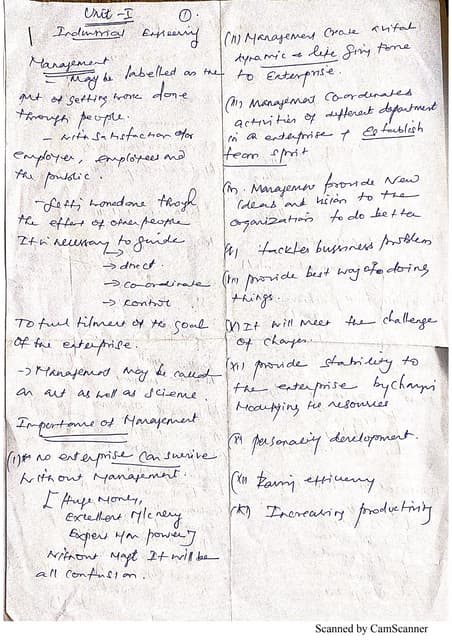 Unit - I
①
Industrial Engineering
Management
- May be labelled as the
art of getting work done
through people.
- with satisfaction for
employer, employees and
the public.
- Getti workdone though
the effort of other people
It is necessary to guide
→ direct
→ co-ordinate
→ control
To fulfilment of the goal
of the enterprise.
→ Management may be called
an art as well as science.
Importance of Management
(i) * no enterprise can survive
without Management.
[Huge Money,
Excellent M/cnery
Expert Man power]
without Magt It will be
all confusion.
(ii) Management create a vital
dynamic & life giving force
to Enterprise.
(iii) Management co-ordinates
activities of different department
in a enterprise & Establish
team sprit
Management provide New
Ideas and vision to the
organization to do better
tackles bussiness problem
provide best way of doing
things.
It will meet the challenge
of change.
provide stability to
the enterprise by changi
Modifying the resources
personality development.
efficiency
Increasing productivity
Scanned by CamScanner